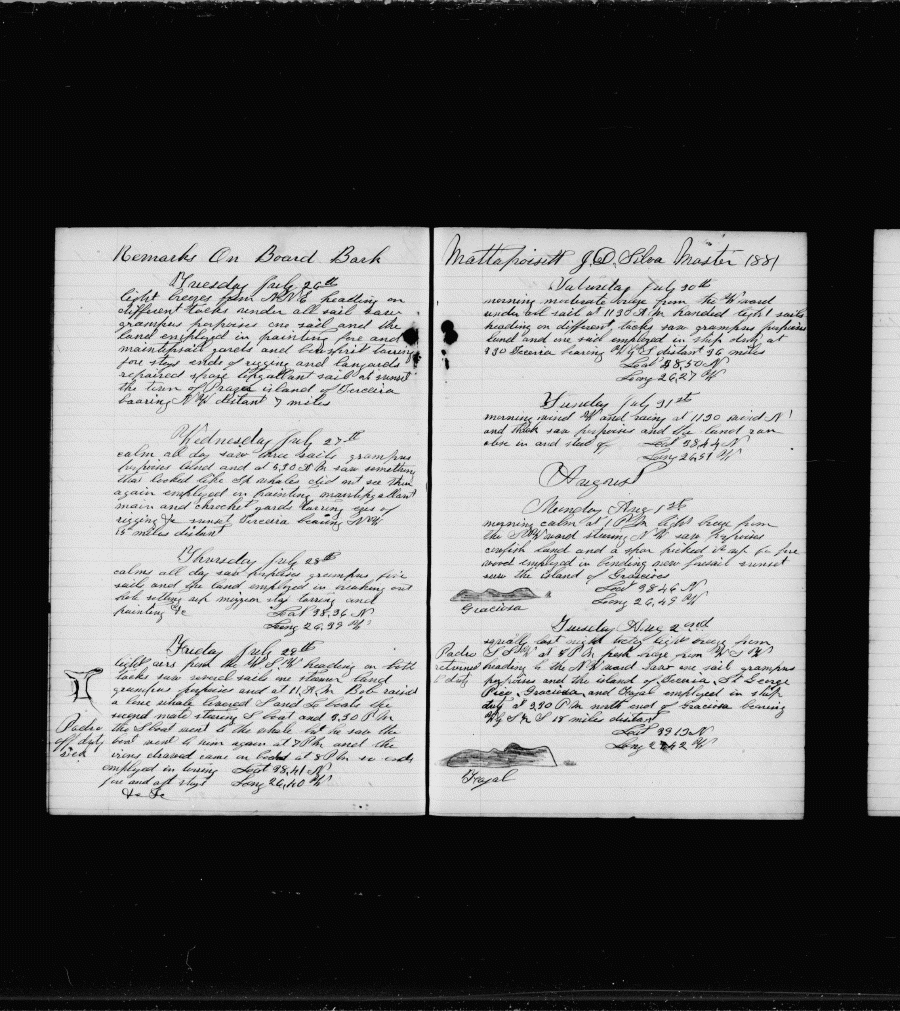 Remarks On Board Bark
Tuesday July 26th
light breezes from N.N.E heading on
different tacks under all sail saw
grampus porpoises one sail and the
land employed in painting fore and
maintopsail yards and bowsprit tarring
fore stays ends of rigging and lanyards
repaired spare topgallant sail at sunset
the town of Praya island of Terceira
bearing N W distant 7 miles
Wednesday July 27th
calm all day saw three sails grampus
porpoises land and at 5,30 A M saw something
that looked like Sp whales did not see them
again employed in painting maintopgallant
main and yards tarring eyes of
rigging &c sunset Terceira bearing N W
15 miles distant
Thursday July 28th
calms all day saw porpoises grampus five
sails and the land employed in breaking out
hole setting up mizzen stay tarring and
painting &c Lat 38,36 N
Long 26,39 W
Friday July 29th
light airs from the W S W heading on both
tacks saw several sails one steamer land
grampus porpoises and at 11 A.M. Bob raised
a lone whale lowered S and Lo boats the
second mate steering S boat and 3,30 P M
the S boat went to the whale but he saw the
boat went to him again at 7 P M and the
irons drawed came in boats at 8 P M so ends
employed in tarring Lat 38,41 N
fore and aft stays Long 26,40 W
&c &c
Padro
off duty
sick
Mattapoisett J.D. Silva Master 1881
Saturday July 30th
morning moderate breeze from the W ward
under all sail at 11 30 A.M. handed light sails
heading on different tacks saw grampus porpoises
land and one sail employed in ship duty at
3 30 Terceira bearing W by S distant 36 miles
Lat 38,50 N
Long 26,27 W
Sunday July 31st
morning wind W and rainy at 11,30 wind N
and thick saw porpoises and the land ran
close in and stood off Lat 38,44 N
Long 26,51 W
August
Munday Aug 1st
morning calm at 1 P.M. light breeze from
the S W ward steering N W saw porpoises
cowfish land and a spar picked it up for fire
wood employed in bending new foresail sunset
saw the island of Graciosa
Lat 38,46 N
Long 26,48 W
Graciosa
Tuesday Aug 2nd
squally last night today light breeze from
S S W at 8 P M fresh breeze from W S W
heading to the N W ward saw one sail grampus
porpoises and the island of Terceira, St George
Pico, Graciosa and Fayal employed in ship
duty at 3,30 P M north end of Graciosa bearing
W by S 18 miles distant
Lat 39 13 N
Long 27 42 W
Padro
returned
to duty
Fayal